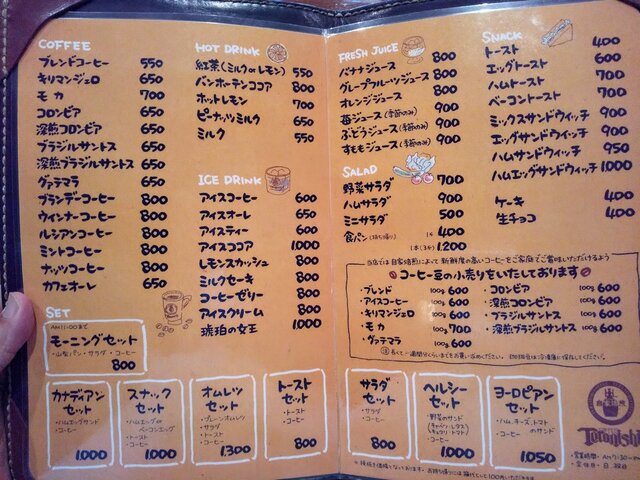 COFFEE
ブレンドコーヒー 550
キリマンジェロ 650
モカ 700
コロンビア 650
深煎コロンビア 650
ブラジルサントス 650
深煎ブラジルサントス 650
グァテマラ 650
ブランデーコーヒー 800
ウィンナーコーヒー 800
ルシアンコーヒー 800
ミントコーヒー 800
ナッツコーヒー 800
カフェオーレ 650
SET
AM11:00まで
モーニングセット
・山型パン・サラダ・コーヒー
800
HOT DRINK
紅茶(ミルク or レモン) 550
バンホーテンココア 800
ホットレモン 700
ピーナッツミルク 650
ミルク 550
ICE DRINK
アイスコーヒー 600
アイスオーレ 650
アイスティー 600
アイスココア 1,000
レモンスカッシュ 800
ミルクセーキ 800
コーヒーゼリー 800
アイスクリーム 800
琥珀の女王 1,000
カナディアンセット
・ハムエッグサンド
・コーヒー
1,000
スナックセット
・ハムエッグ or ベーコンエッグ
・トースト
・コーヒー
1,000
オムレツセット
・プレーンオムレツ
・サラダ
・トースト
・コーヒー
1,300
トーストセット
・トースト
・コーヒー
800
FRESH JUICE
バナナジュース 800
グレープフルーツジュース 800
オレンジジュース 800
苺ジュース(季節のみ) 900
ぶどうジュース(季節のみ) 900
すももジュース(季節のみ) 900
SALAD
野菜サラダ 700
ハムサラダ 900
ミニサラダ 500
食パン(持ち帰り) 1/4 400
1本(3斤) 1,200
SNACK
トースト 400
エッグトースト 600
ハムトースト 700
ベーコントースト 700
ミックスサンドウィッチ 900
エッグサンドウィッチ 900
ハムサンドウィッチ 950
ハムエッグサンドウィッチ 1,000
ケーキ 400
生チョコ 400
当店では自家焙煎によって新鮮度の高いコーヒーをご家庭でご賞味いただけるよう
コーヒー豆の小売りをいたしております
・ブレンド 100g 600
・アイスコーヒー 100g 600
・キリマンジェロ 100g 600
・モカ 100g 700
・グァテマラ 100g 600
・コロンビア 100g 600
・深煎コロンビア 100g 600
・ブラジルサントス 100g 600
・深煎ブラジルサントス 100g 600
サラダセット
・サラダ
・コーヒー
800
ヘルシーセット
・野菜のサンド
(キャベツ・レタス)
(キュウリ・トマト)
・コーヒー
1,000
ヨーロピアンセット
・ハム、チーズ、トマトのサンド
・コーヒー
1050
・営業時間・AM7:30〜
・定休日・